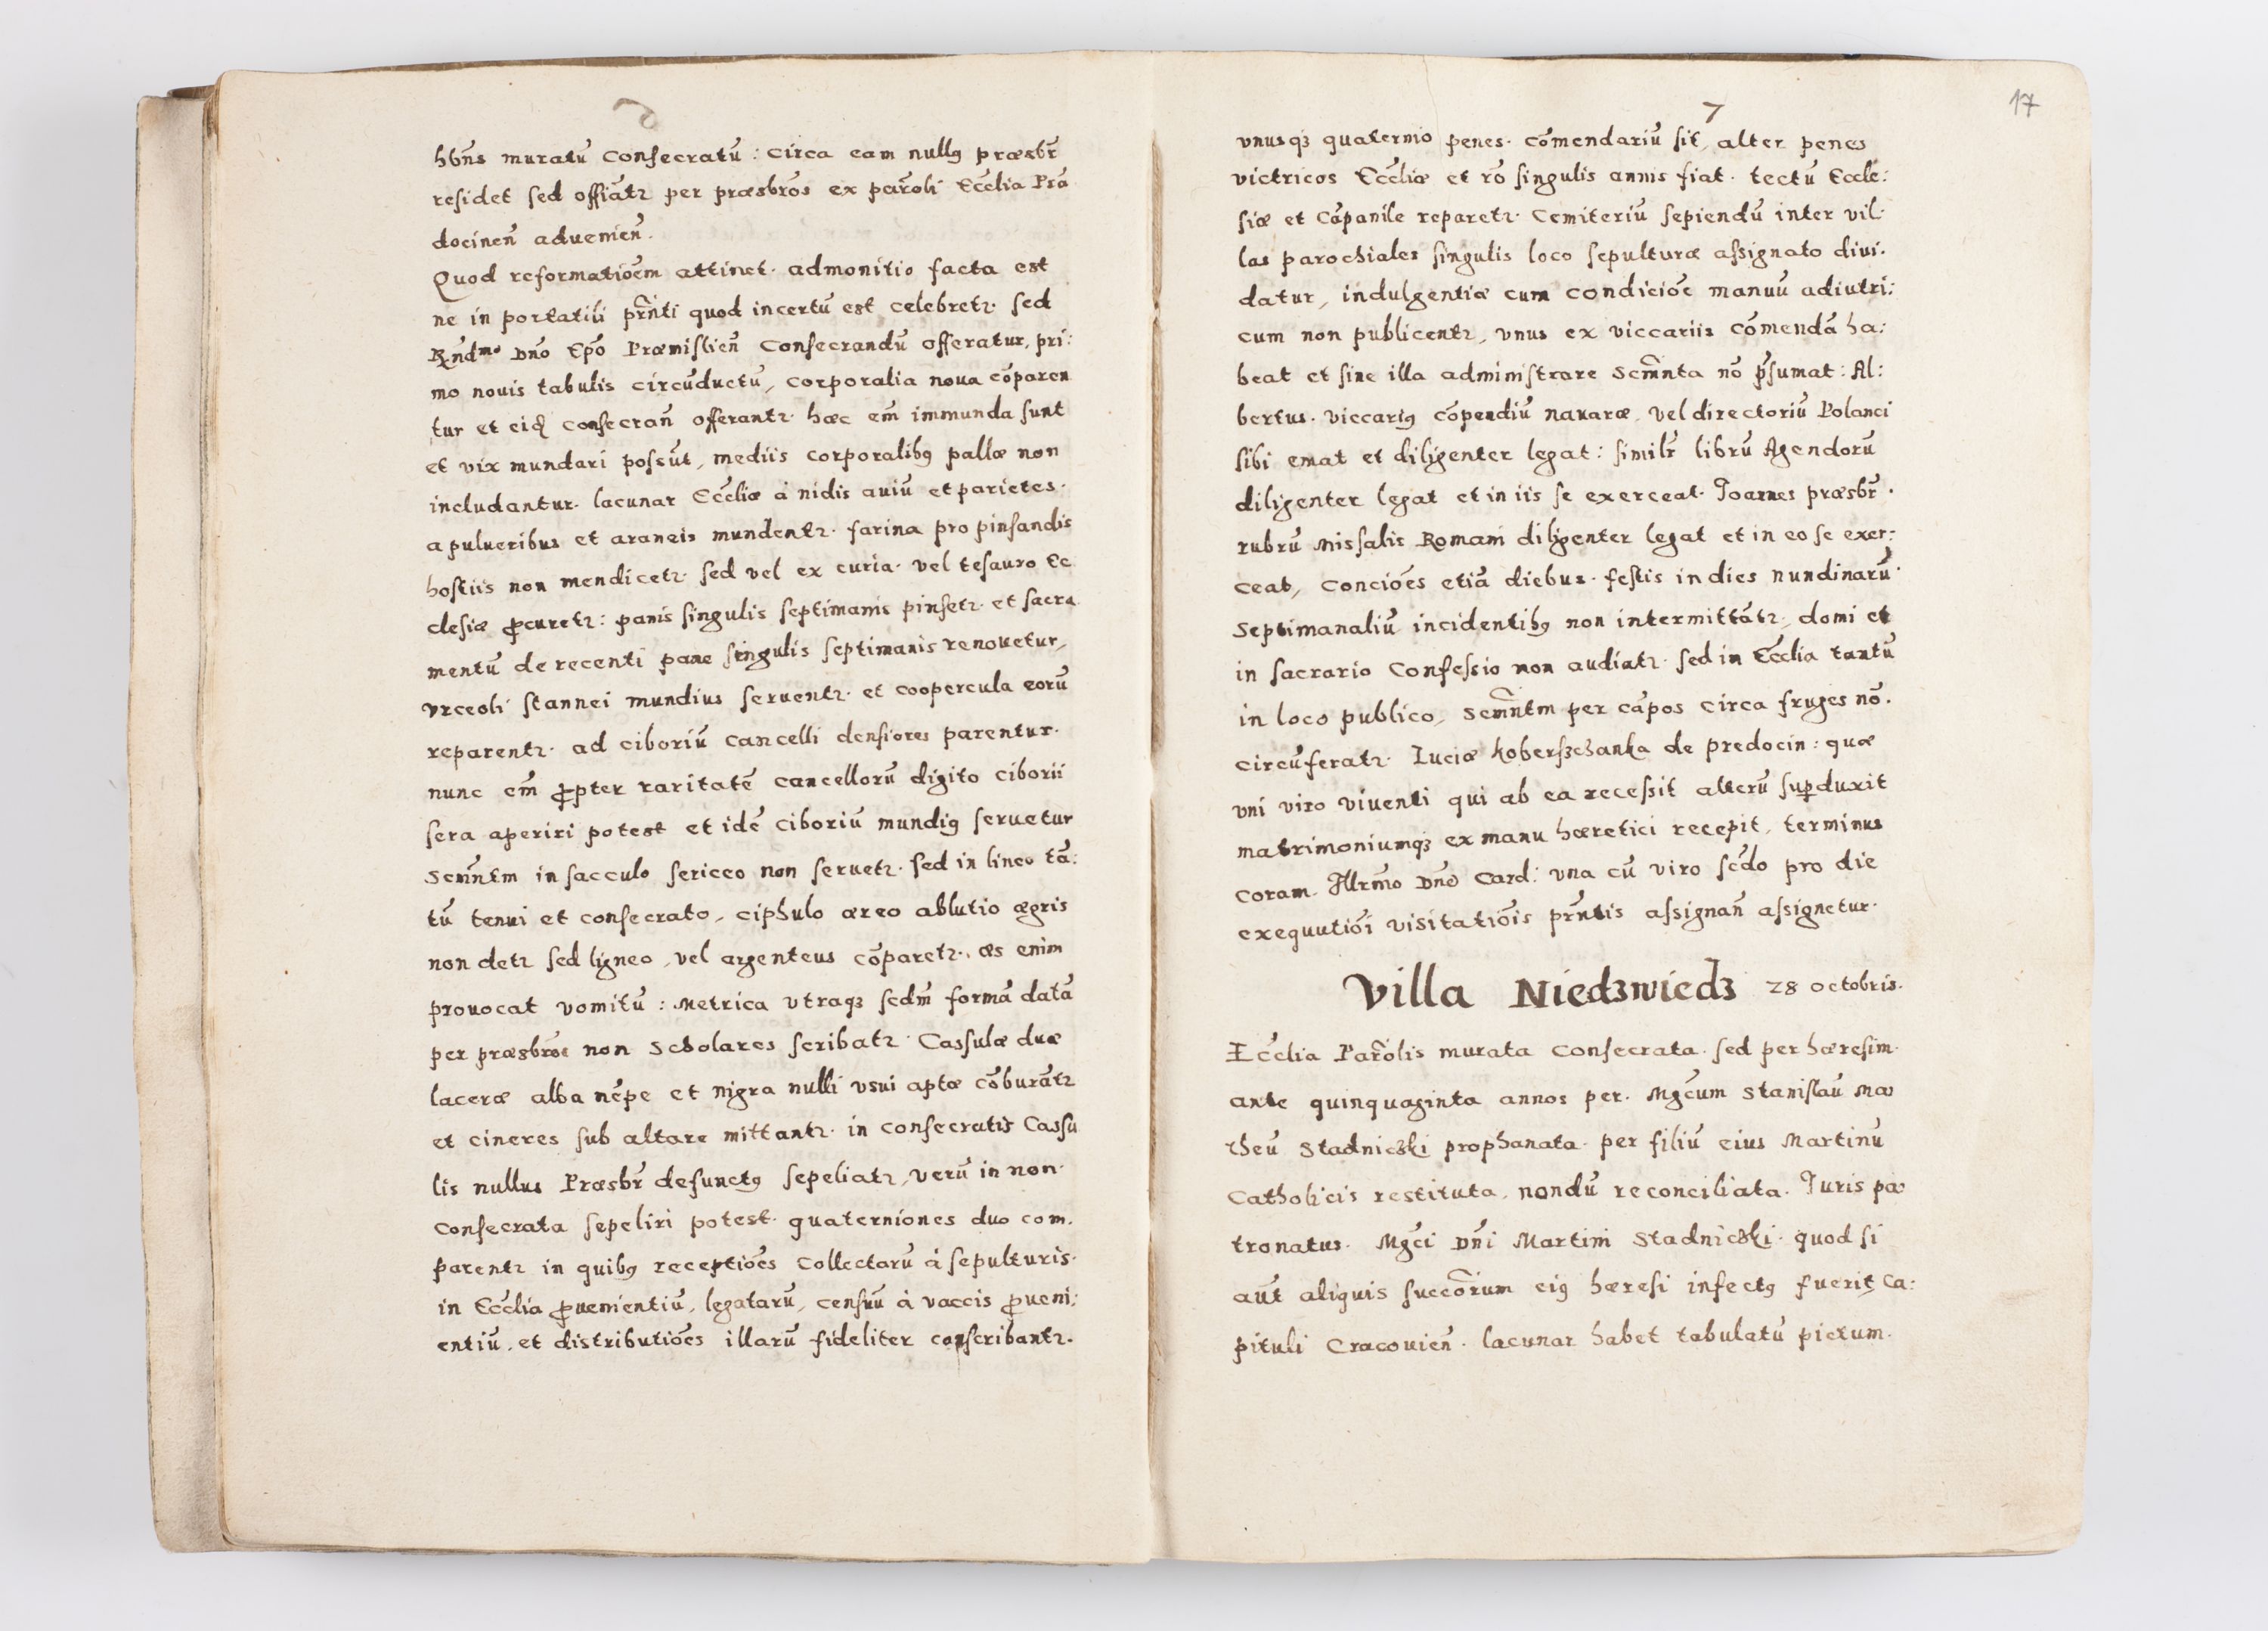 6
hb̃ns muratũ Consecratũ : circa eam nullꝰ præsbr̃
residet sed offiãtr per præsbr̃os ex par̃oli Eccl̃ia Prã
docinen̄ aduenien̄.
Quod reformatiõem attinet. admonitio facta est
ne in portatili pr̃nti quod incertũ est celebretr. sed
Rñdmo Dño Ep̃o Præmislien̄ Consecrandũ offeratur, pri:
mo nouis tabulis circũductũ, corporalia noua cõparen
tur et eid consecran̄ offerantr. hæc em̄ immunda sunt
et vix mundari possũt, mediis corporalibꝰ pallæ non
includantur. lacunar Eccl̃iæ à nidis auiũ et parietes.
a pulueribus et araneis mundentr. farina pro pinsandis
hostiis non mendicetr. sed vel ex curia. vel tesauro Ec
clesiæ ꝓcuretr: panis singulis septimanis pinsetr. et sacra
mentũ de recenti pane singulis septimanis renouetur,
vrceoli stannei mundius seruentr. et coopercula eorũ
reparentr. ad ciboriũ cancelli densiores parentur.
nunc em̄ ꝓpter raritatẽ cancellorũ digito ciborii
sera aperiri potest et idẽ ciboriũ mundiꝰ seruetur
Scm̃ntm in sacculo sericeo non seruetr. sed in lineo tã:
tũ tenui et consecrato, ciphulo æreo ablutio ægris
non detr sed ligneo, vel argenteus cõparetr., æs enim
prouocat vomitũ : Metrica vtraqꝫ scdm̃ formã datã
per præsbr̃os non Scholares scribatr. Cassulæ duæ
laceræ alba nẽpe et nigra nulli vsui aptæ cõburãtr
et cineres sub altare mittantr. in consecratis Cassu
lis nullus Præsbr̃ defunctꝰ sepeliatr, verũ in non.
Consecrata sepeliri potest. quaterniones duo com.
parentr in quibꝰ receptiões Collectarũ à sepulturis.
in Eccl̃ia ꝓuenientiũ, legatarũ, censuũ à vaccis ꝓueni:
entiũ. et distributiões illarũ fideliter conscribantr.
7
17
vnusqꝫ quaternio penes. cõmendariũ sit, alter penes
victricos Eccl̃iæ et rõ singulis annis fiat. tectũ Eccle:
siæ et Cãpanile reparetr. Cemiteriũ sepiendũ inter vil.
las parochiales singulis loco sepulturæ assignato diui.
datur, indulgentiæ cum condiciõe manuũ adiutri:
cum non publicentr, vnus ex viccariis cõmendã ha:
beat et sine illa administrare Scm̃nta nõ p̃sumat: Al:
bertus. viccariꝰ cõpendiũ nauaræ, vel directoriũ Polanci
sibi emat et diligenter legat: similr̃ librũ Agendorũ
diligenter legat et in iis se exerceat. Joannes præsbr̃.
rubrũ Missalis Romani diligenter legat et in eo se exer:
ceat, Conciões etiã diebus. festis in dies nundinarũ.
Septimanaliũ incidentibꝰ non intermittãtr, domi et
in sacrario Confessio non audiatr. sed in Eccl̃ia tantũ
in loco publico, Scm̃ntm per cãpos circa fruges nõ.
circũferatr. Luciæ koberszchanka de predocin: quæ
vni viro viuenti qui ab ea recessit alterũ suꝑduxit
matrimoniumqꝫ ex manu hæretici recepit, terminus
coram. Jllrmõ Dño Card: vna cũ viro scd̃o pro die
exequutiõi visitatiõis pr̃ntis assignan̄ assignetur.
Villa Niedzwiedz 28 octobris.
Eccl̃ia Par̃olis murata Consecrata. sed per hæresim.
ante quinquaginta annos per. Mgc̃um Stanislaũ Ma
theũ Stadnicski prophanata. per filiũ eius Martinũ
Catholicis restituta, nondũ reconciliata. Juris pa
tronatus. Mgc̃i Dñi Martini Stadnicski. quod si
aũt aliquis succõrum eiꝰ hæresi infectꝰ fuerit Ca:
pituli Cracouien̄. lacunar habet tabulatũ pictum.